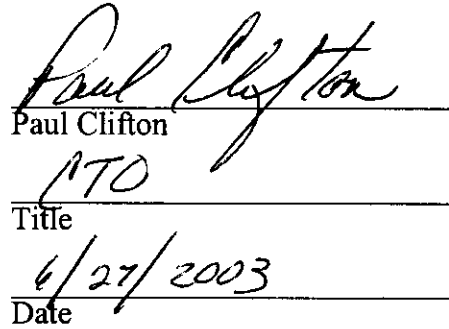 Paul Clifton
Paul Clifton
CTO
Title
6/27/2003
Date